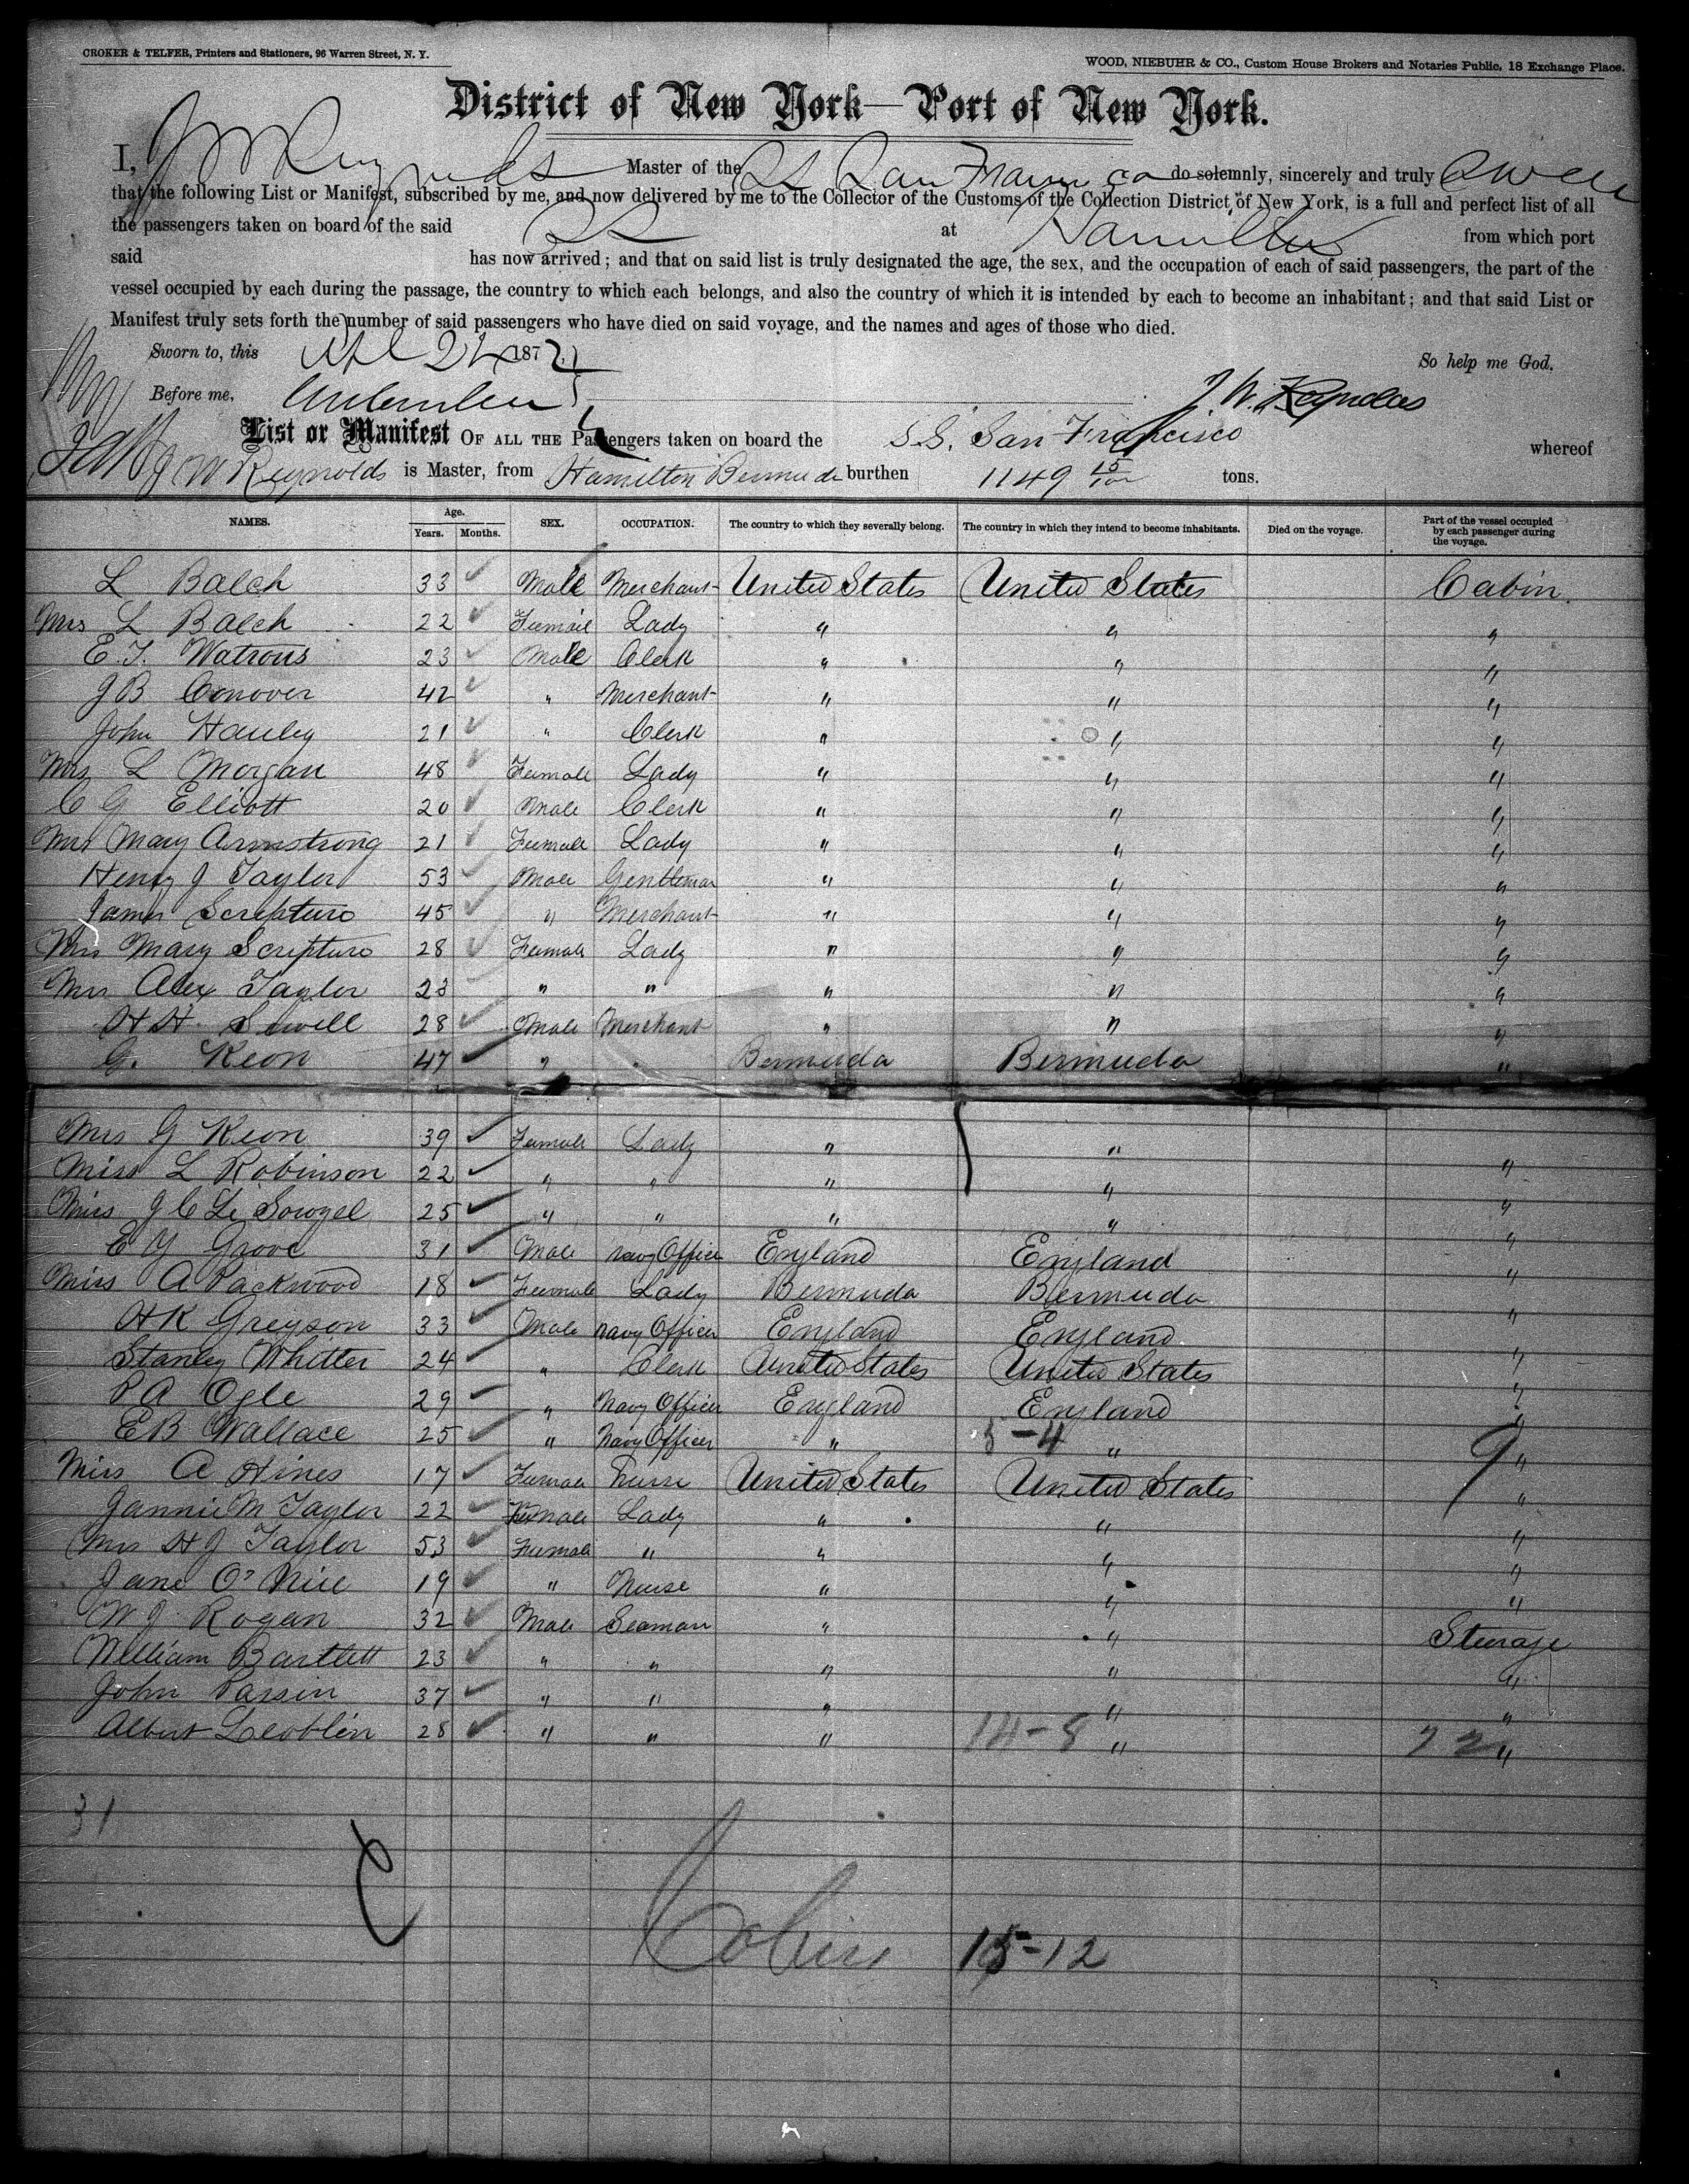 CROKER & TELFER, Printers and Stationers, 96 Warren Street, N. Y.
WOOD, NIEBUHR & CO., Custom House Brokers and Notaries Public, 18 Exchange Place.
District of New York—Port of New York.
I, J W Reynolds Master of the SS San Francisco do solemnly, sincerely and truly swear
that the following List or Manifest, subscribed by me, and now delivered by me to the Collector of the Customs of the Collection District of New York, is a full and perfect list of all
the passengers taken on board of the said SS at Hamilton from which port
said has now arrived; and that on said list is truly designated the age, the sex, and the occupation of each of said passengers, the part of the
vessel occupied by each during the passage, the country to which each belongs, and also the country of which it is intended by each to become an inhabitant; and that said List or
Manifest truly sets forth the number of said passengers who have died on said voyage, and the names and ages of those who died.
Sworn to, this 187 So help me God.
Before me, J. W. Reynolds
List or Manifest OF ALL THE Passengers taken on board the S.S. San Francisco whereof
J W Reynolds is Master, from Hamilton Bermuda burthen 1149 15/100 tons.
NAMES. Age. Years. Months. SEX. OCCUPATION. The country to which they severally belong. The country in which they intend to become inhabitants. Died on the voyage. Part of the vessel occupied by each passenger during the voyage.
L Balch 33 Male Merchant United States United States Cabin.
Mrs L Balch 22 Femail Lady " " "
E. T. Watrous 23 Male Clerk " " "
J B Conover 42 " Merchant " " "
John Hanley 21 " Clerk " " "
Mrs L Morgan 48 Female Lady " " "
C G Elliott 20 Male Clerk " " "
Mrs Mary Armstrong 21 Female Lady " " "
Henry J Taylor 53 Male Gentleman " " "
James Scripture 45 " Merchant " " "
Mrs Mary Scripture 28 Female Lady " " "
Mrs Alex Taylor 23 " " " " "
H H. Sewell 28 Male Merchant " " "
G. Keon 47 " " Bermuda Bermuda "
Mrs G Keon 39 Female Lady " " "
Miss L Robinson 22 " " " " "
Miss J C Le 25 " " " " "
E Y Grove 31 Male Navy Officer England England "
Miss A Packwood 18 Female Lady Bermuda Bermuda "
H K Greyson 33 Male Navy Officer England England "
Stanley Whitter 24 " Clerk United States United States "
P A Ogle 29 " Navy Officer England England "
E B Wallace 25 " Navy Officer " 5-4 " "
Miss A Hines 17 Female Nurse United States United States "
Jannie M Taylor 22 Female Lady " " "
Mrs H J Taylor 53 Female " " " "
Jane O'Niel 19 " Nurse " " "
W J. Rogan 32 Male Seaman " " Sturage
William Bartlett 23 " " " " "
John Parsin 37 " " " " "
Albert 28 " " " 14-8 " 22 "
31
15-12